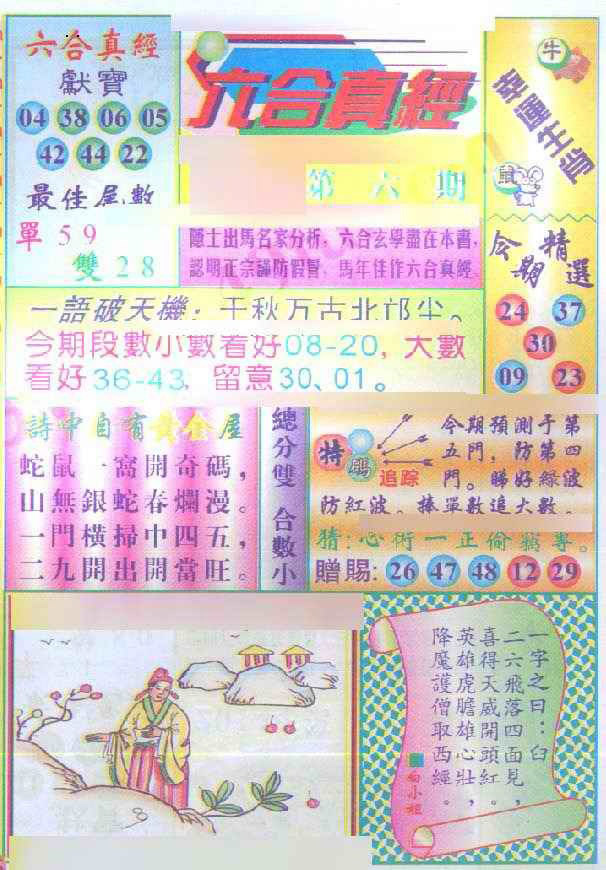 六合真經
獻寶
04 38 06 05
42 44 22
最佳尾數
單 59
雙 28
六合真經
第六期
隱士出馬名家分析，六合玄學盡在本書，
認明正宗謹防假冒，馬年佳作六合真經
牛
幸運生肖
鼠
今期精選
24 37
30
09 23
一語破天機：千秋万古北邙尘。
今期段數小數看好08-20，大數
看好36-43，留意30、01。
詩中自有黃金屋
蛇鼠一窩開奇碼，
山無銀蛇春爛漫。
一門橫掃中四五，
二九開出開當旺。
總分雙 合數小
特碼
追踪
今期預測于第
五門，防第四
門。睇好綠波
防紅波。捧單數追大數。
猜：心術一正偷竊專。
贈賜：26 47 48 12 29
一字之曰：白
二六飛落四面見，
喜得天威開頭紅。
英雄虎膽雄心壯，
降魔護僧取西經。
白小姐